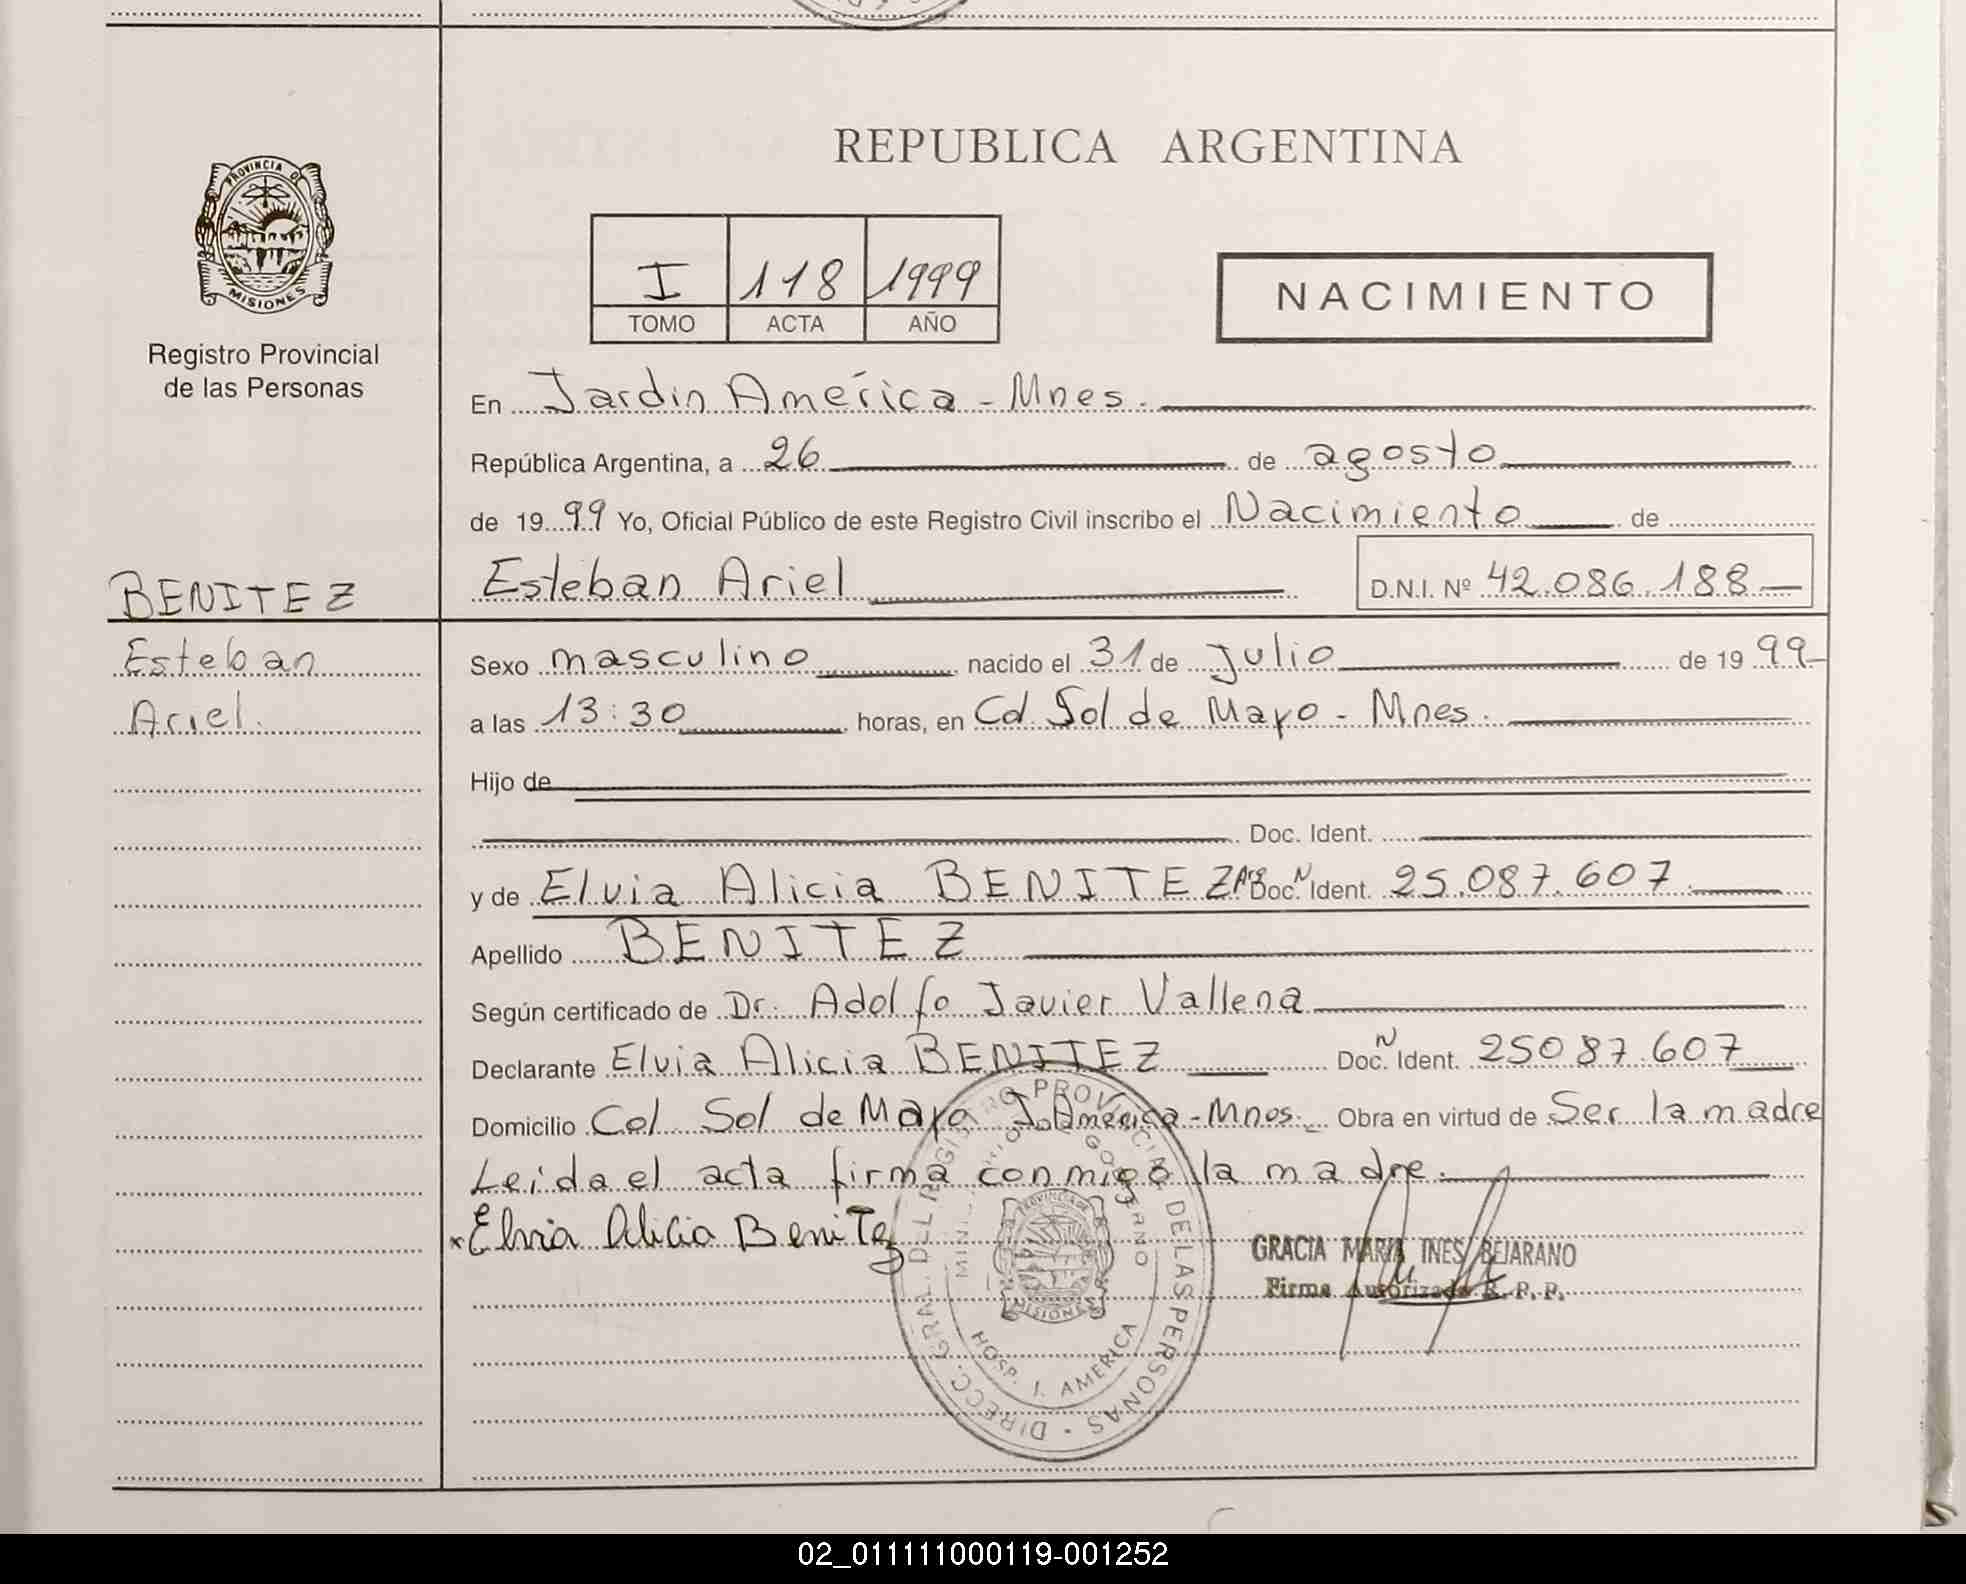 REPUBLICA ARGENTINA
PROVINCIA DE
MISIONES
Registro Provincial
de las Personas
I 118 1999
TOMO ACTA AÑO
NACIMIENTO
En Jardin América - Mnes.
República Argentina, a 26 de agosto
de 1999 Yo, Oficial Público de este Registro Civil inscribo el Nacimiento de
BENITEZ
Esteban Ariel D.N.I. Nº 42.086.188
Esteban
Ariel.
Sexo masculino nacido el 31 de Julio de 1999
a las 13:30 horas, en Cd Sol de Mayo - Mnes.
Hijo de
Doc. Ident.
y de Elvia Alicia BENITEZ Arg Doc. N Ident. 25.087.607
Apellido BENITEZ
Según certificado de Dr. Adolfo Javier Vallena
Declarante Elvia Alicia BENITEZ Doc. N Ident. 25087.607
Domicilio Col Sol de Mayo J. América - Mnes. Obra en virtud de Ser la madre
Leida el acta firma conmigo la madre.
x Elvia Alicia Benitez
DIRECC. GRAL. DEL REGISTRO PROVINCIAL DE LAS PERSONAS
GOBIERNO
PROVINCIA DE
MISIONES
HOSP. J. AMERICA
GRACIA MARIA INES BEJARANO
Firma Autorizada R. P. P.
02_011111000119-001252